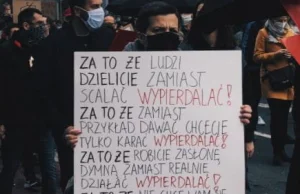 ZA TO ŻE LUDZI
DZIELICIE ZAMIAST
SCALAĆ WYPIERDALAĆ!
ZA TO ŻE ZAMIAST
PRZYKŁAD DAWAĆ CHCECIE
TYLKO KARAĆ WYPIERDALAĆ!
ZA TO ŻE ROBICIE ZASŁONĘ
DYMNĄ ZAMIAST REALNIE
DZIAŁAĆ WYPIERDALAĆ!
ZA TO ŻE NIE CHCE WAM SIĘ